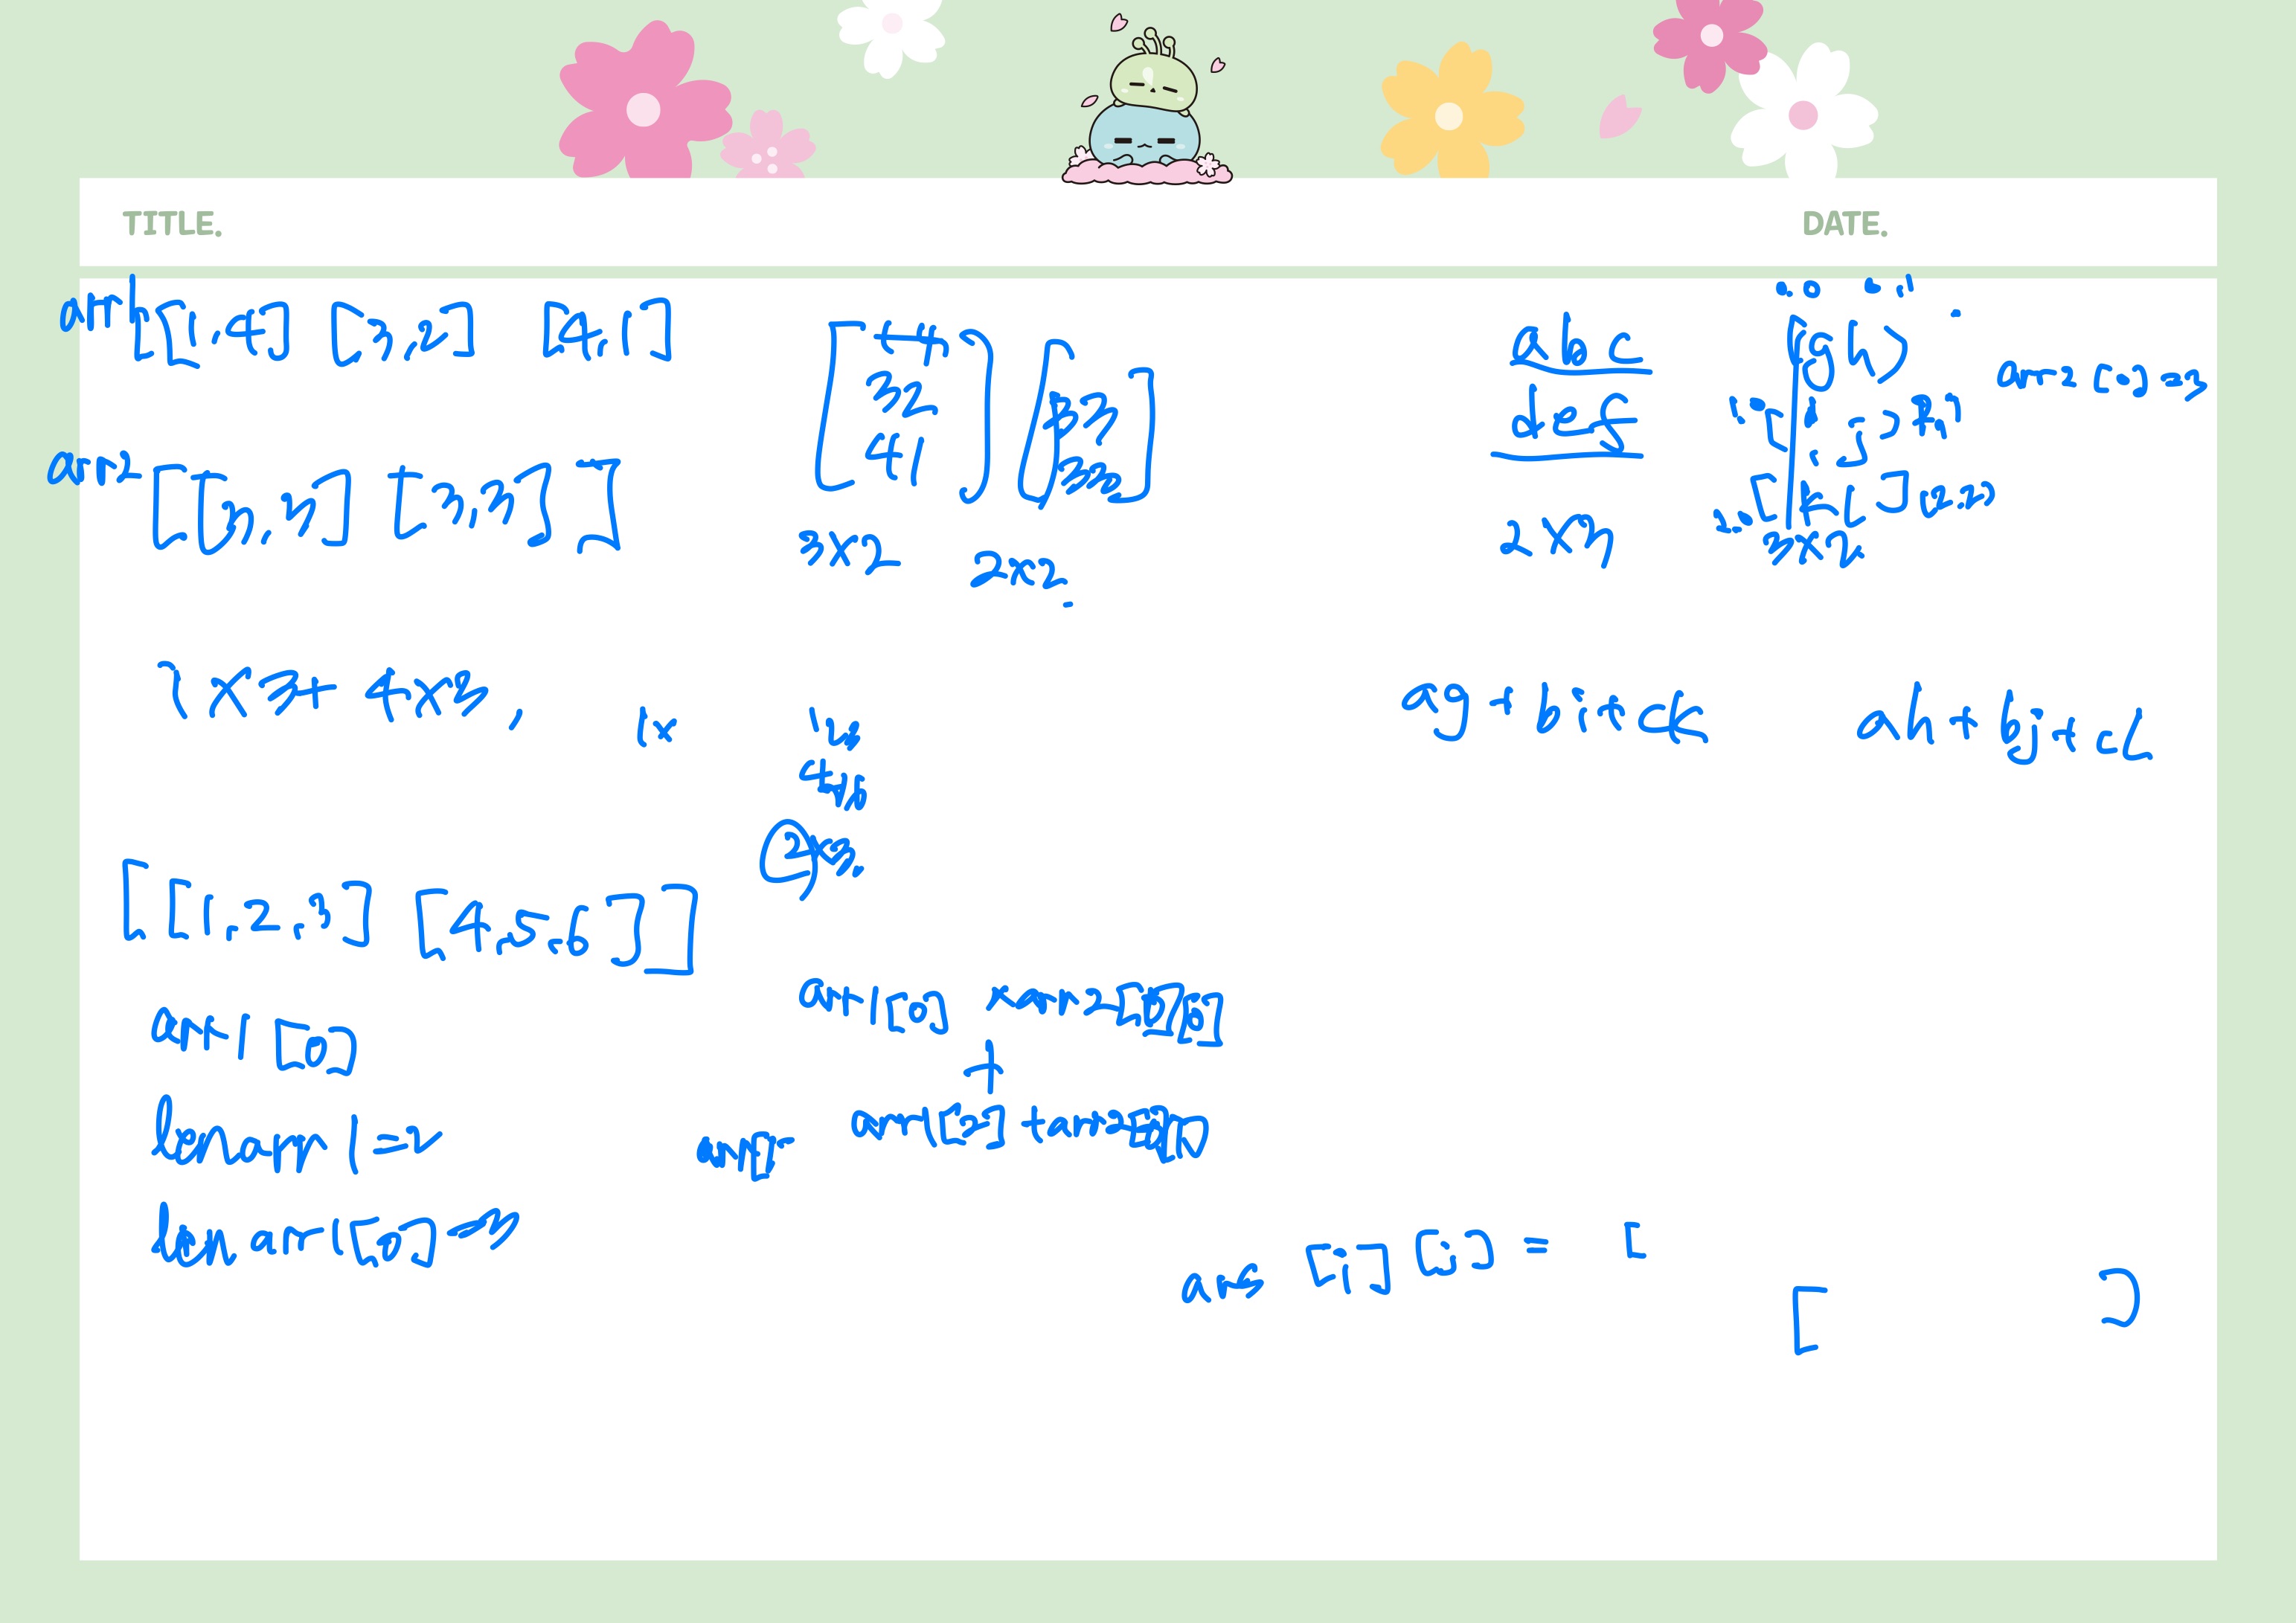 TITLE.
DATE.
arr1 [[1,4] [3,2] [4,1]
arr2 [[3,3] [3,3]]
14
32
41
3x2
33
33
2x2
abc
def
2x3
0.0 0.1
(gh)
1.0 [i j]
2.0 [k l] (2.2)
3x2
1x3+ 4x3,
1x
123
456
2x3
ag+bi+ck
ah+bj+cl
[[1,2,3] [4,5,6]]
arr1[0]
len arr1 =2
len arr1[0] =3
arr1[0] x arr2[0][0]
+
ans [i] [j] = [
[ ]